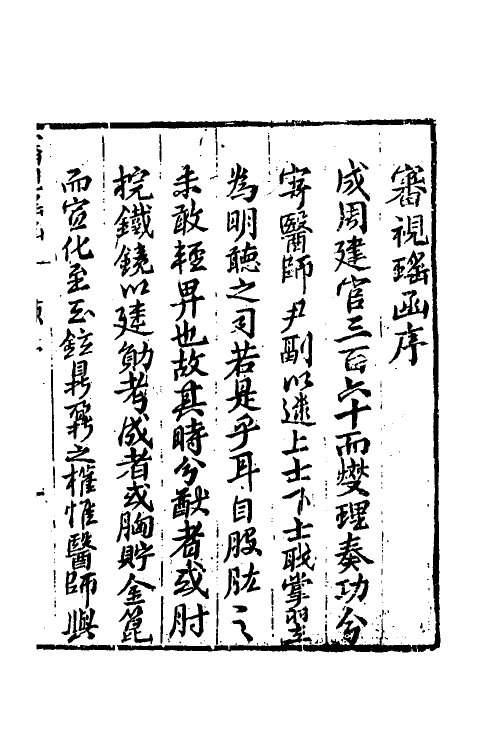 審視瑤函序
成周建官三百六十而燮理奏功分
寄醫師尹副以逮上士下士職掌翌
為明聽之司若是乎耳目股肱之
未敢輕畀也故其時分猷者或肘
捖鐵鏡以建勛考成者或胸貯金篦
而宣化至玉鉉鼎鼐之權惟醫師與